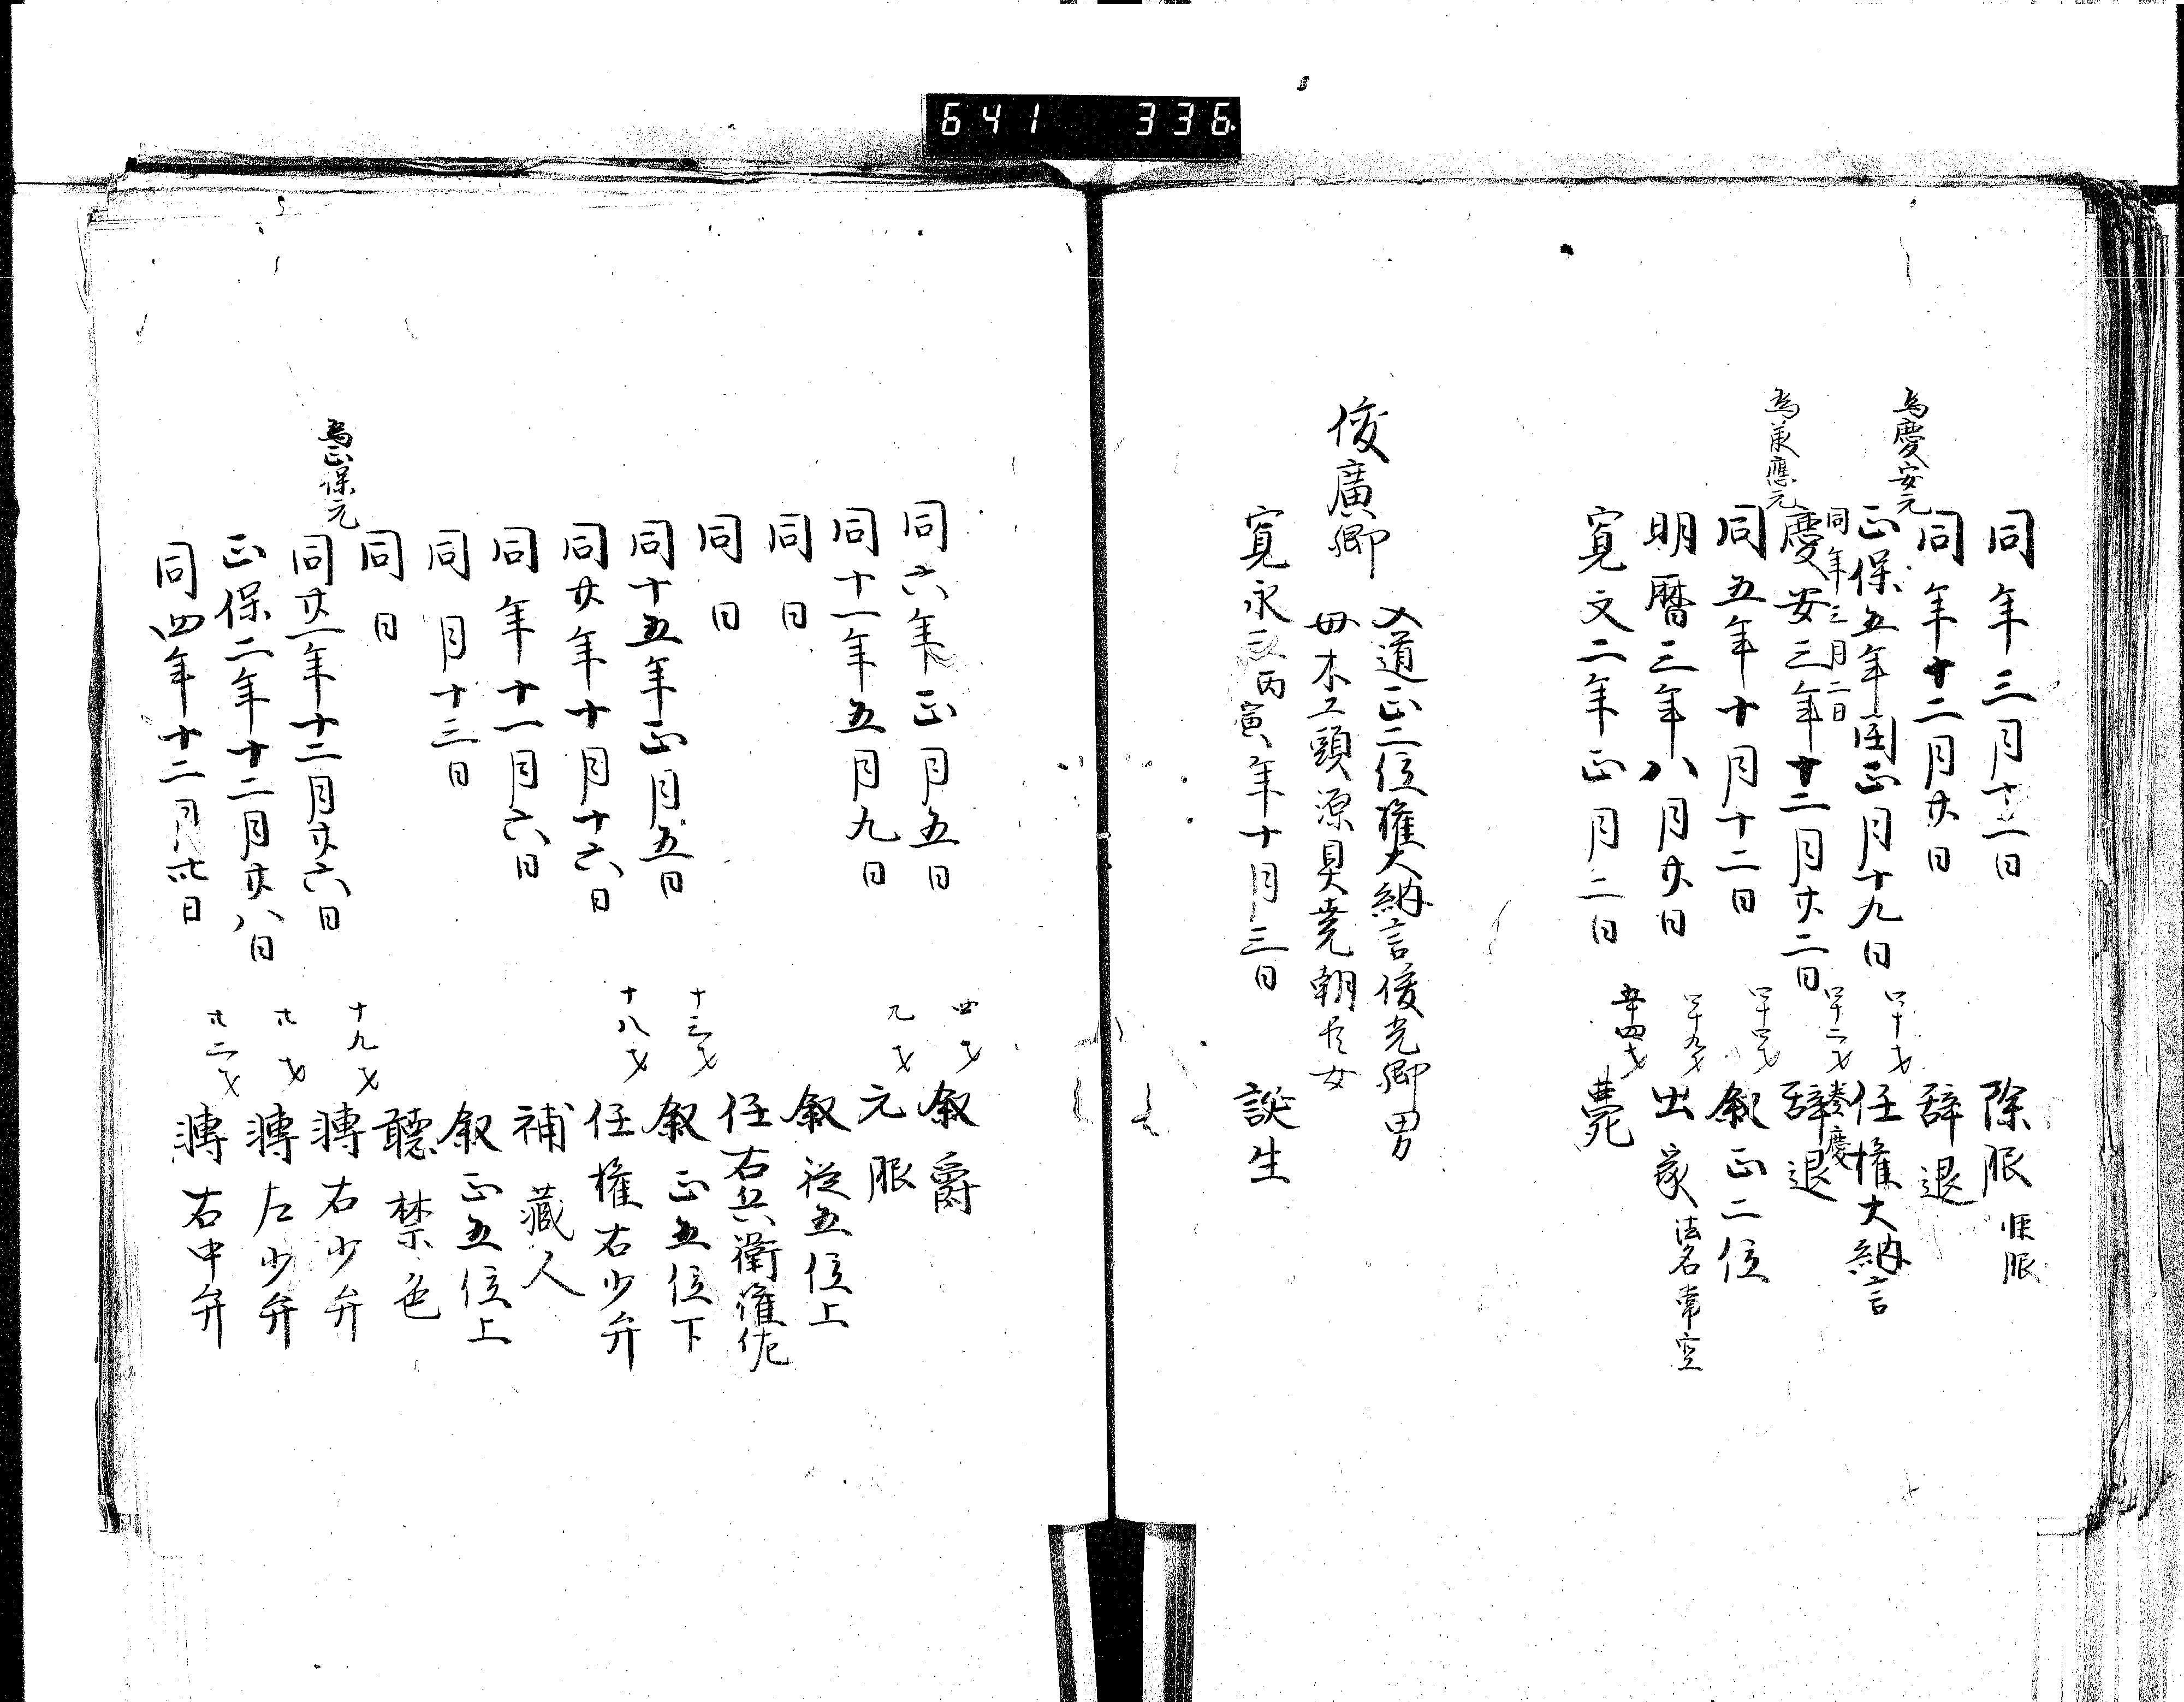 641 336.
同年三月十一日 除服 復服
同年十二月廿日 辞退
為慶安元
正保五年閏正月十九日 四十才 任権大納言
同年三月二日 奏慶
慶安三年十二月廿二日 四十二才 辞退
為承應元
同五年十月十二日 四十四才 叙正二位
明暦三年八月廿日 四十九才 出家 法名常空
寛文二年正月二日 五十四才 薨
俊廣卿 入道正二位権大納言俊光卿男
母木工頭源具堯朝臣女
寛永三丙寅年十月三日 誕生
同六年正月五日 四才 叙爵
同十一年五月九日 九才 元服
同日 叙従五位上
同日 任右兵衛権佐
同十五年正月五日 十三才 叙正五位下
同廿年十月十六日 十八才 任権右少弁
同年十一月六日 補蔵人
同月十三日 叙正五位上
同日 聴禁色
為正保元
同廿一年十二月廿六日 十九才 轉右少弁
正保二年十二月廿八日 廿才 轉左少弁
同四年十二月廿日 廿二才 轉右中弁